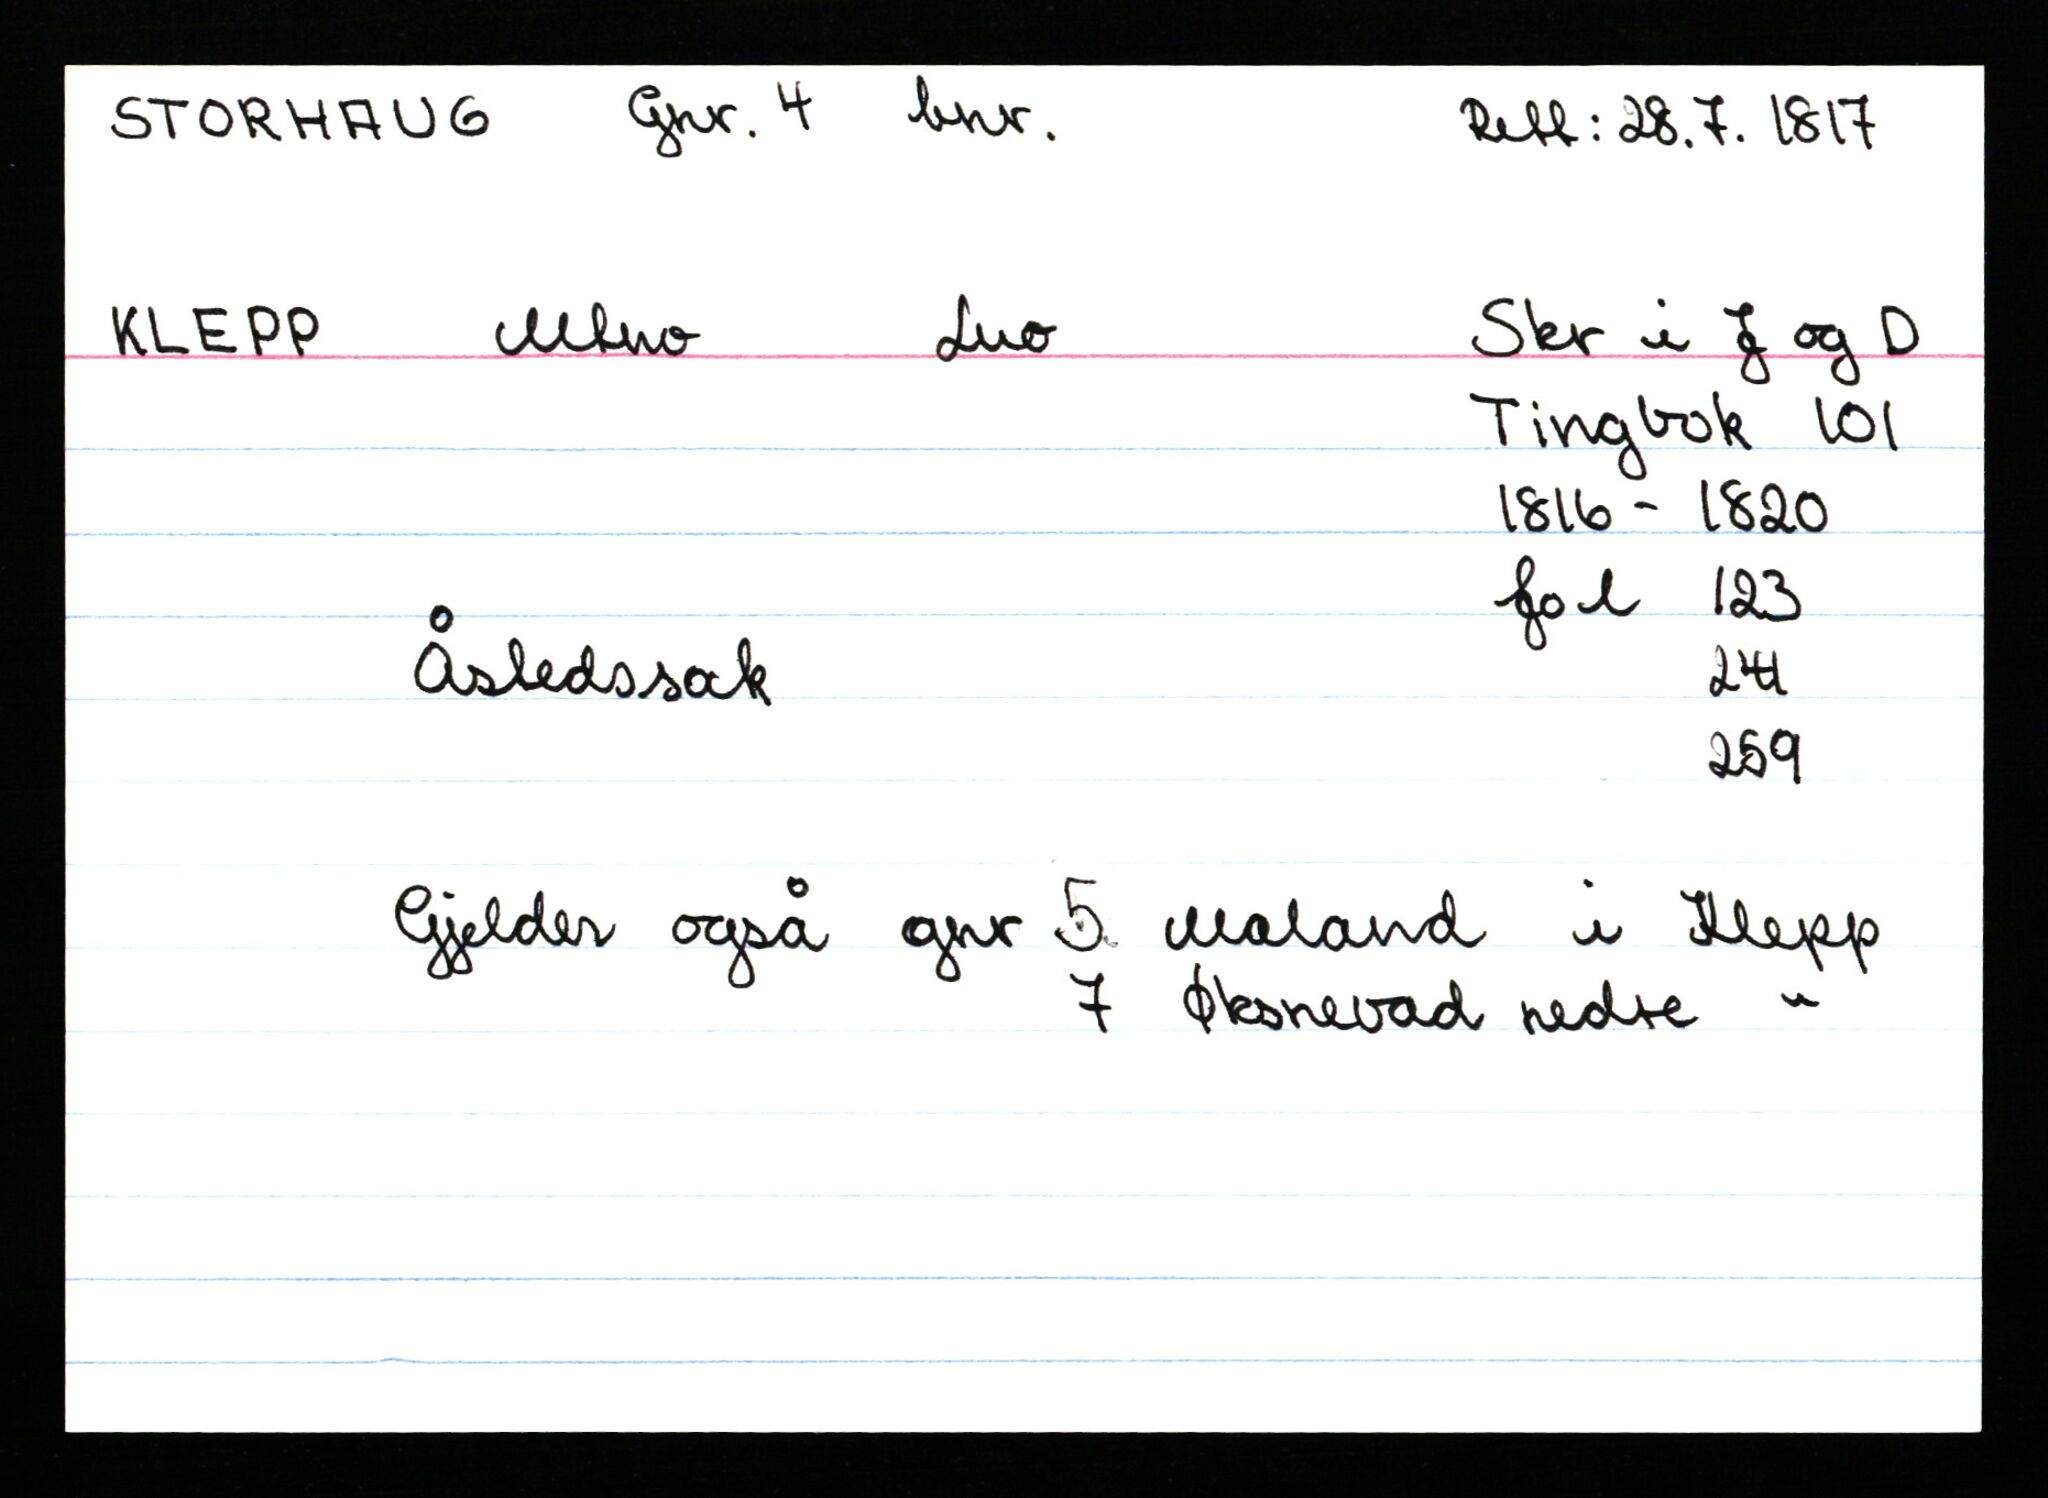 STORHAUG Gnr. 4 bnr. Rett: 28.7. 1817
KLEPP Mtno Lno Skr i J og D
Tingbok 101
1816 - 1820
fol 123
Åstedssak 241
259
Gjelder også gnr 5 Maland i Klepp
7 Øksnevad nedre "